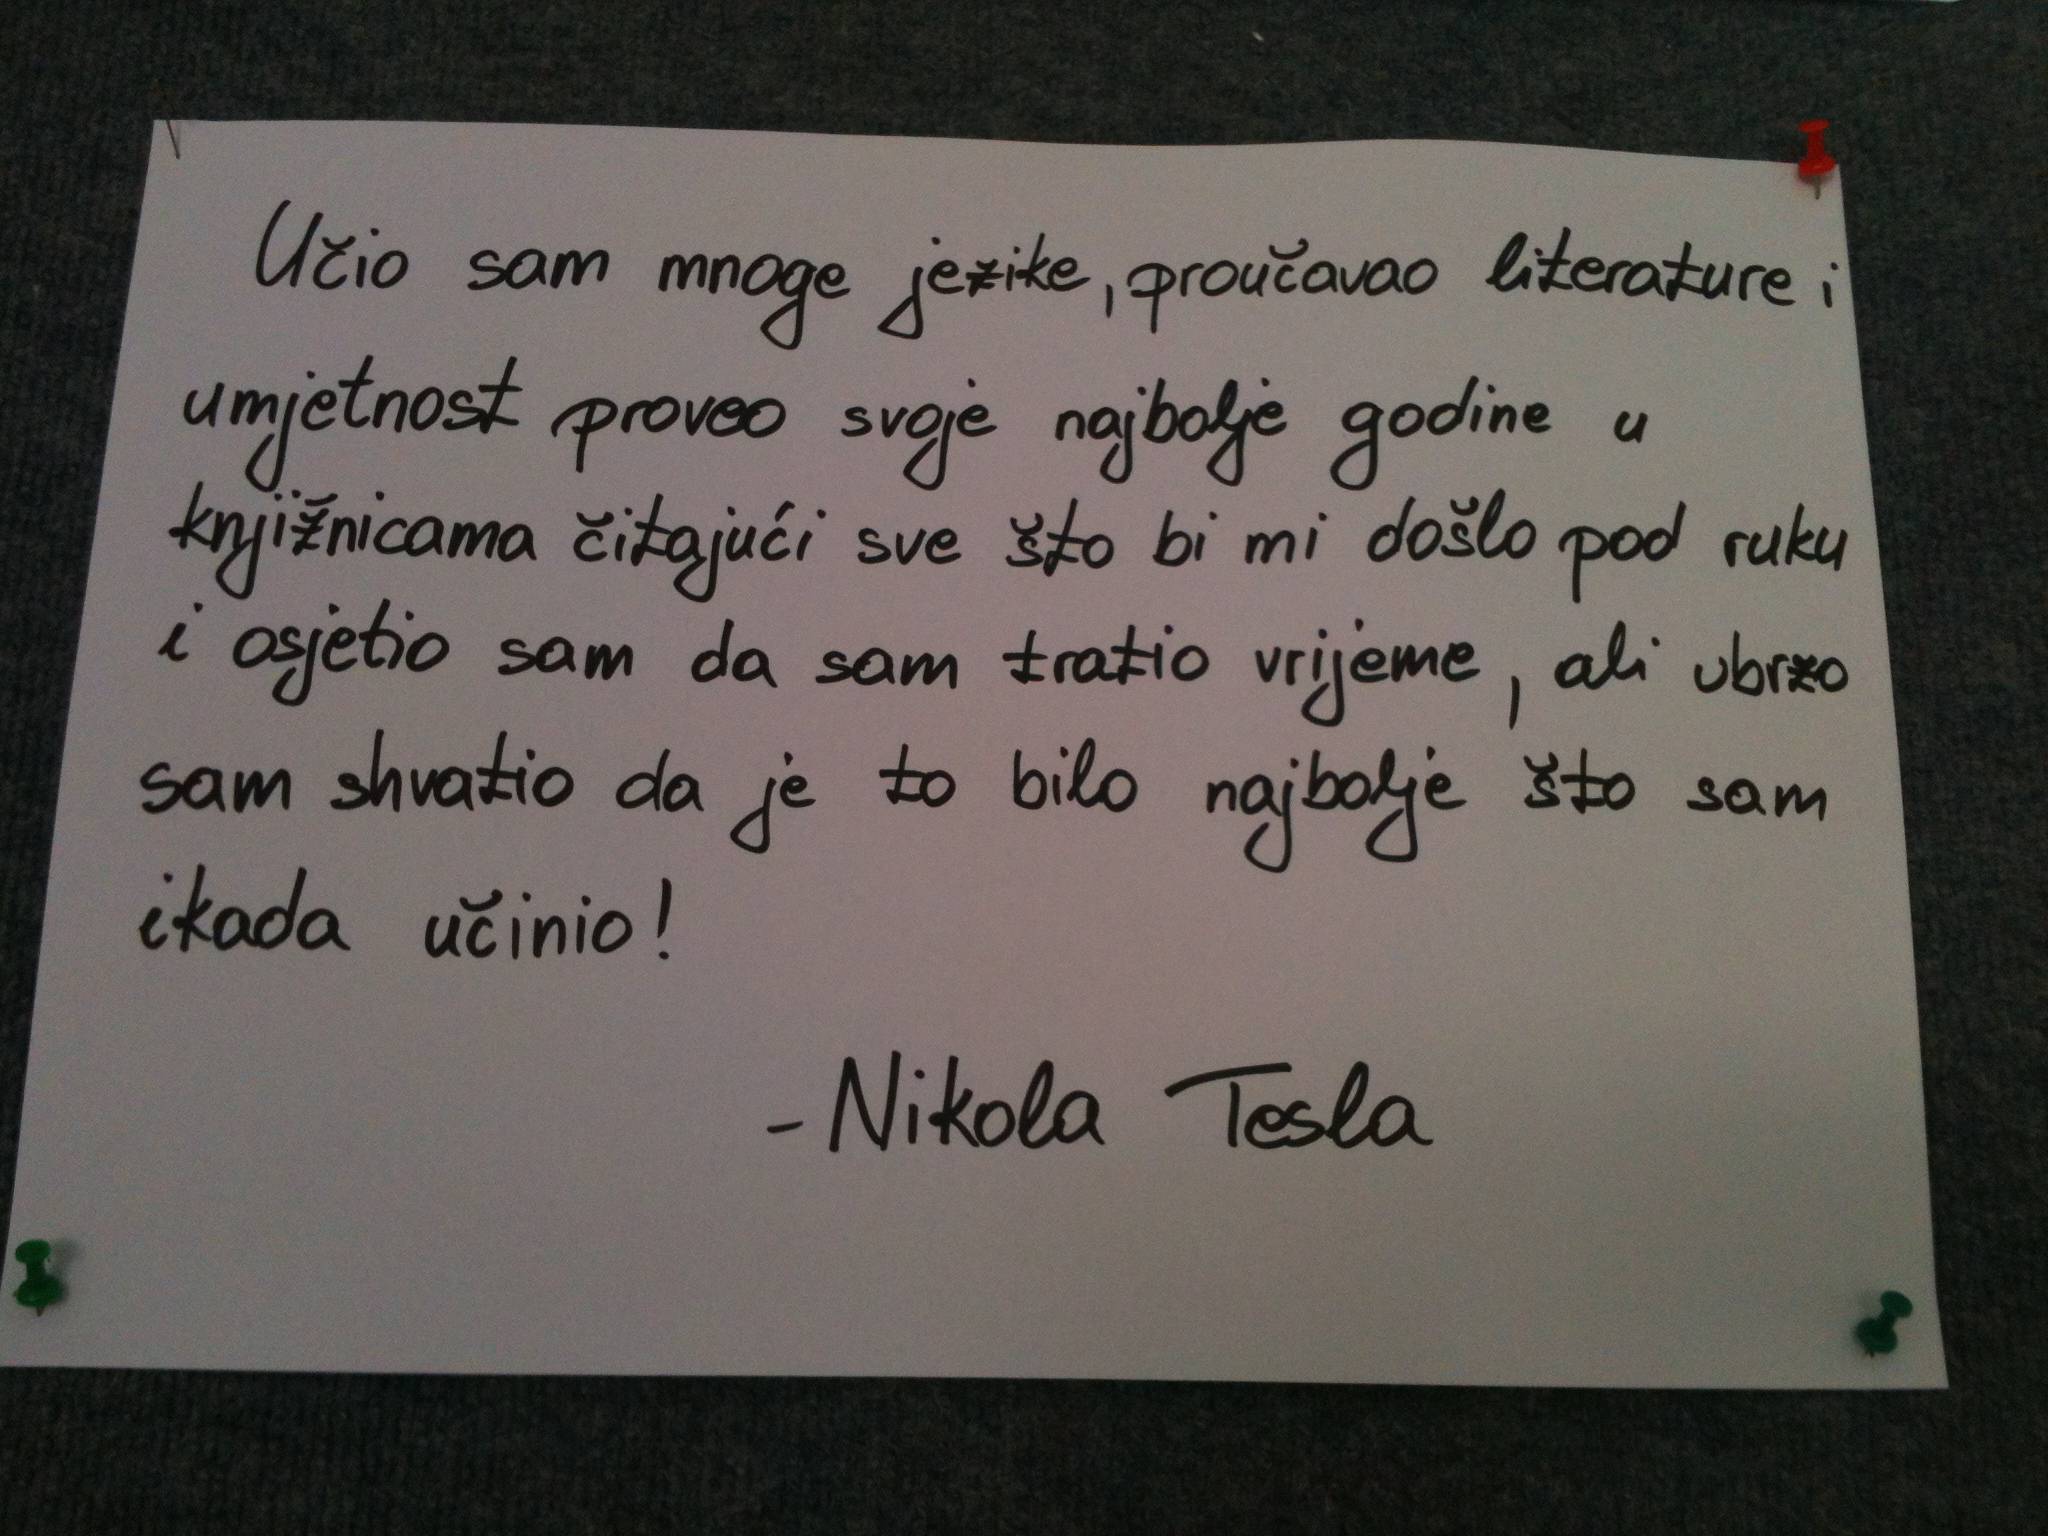 Učio sam mnoge jezike, proučavao literature i
umjetnost proveo svoje najbolje godine u
knjižnicama čitajući sve što bi mi došlo pod ruku
i osjetio sam da sam tratio vrijeme, ali ubrzo
sam shvatio da je to bilo najbolje što sam
ikada učinio!
- Nikola Tesla